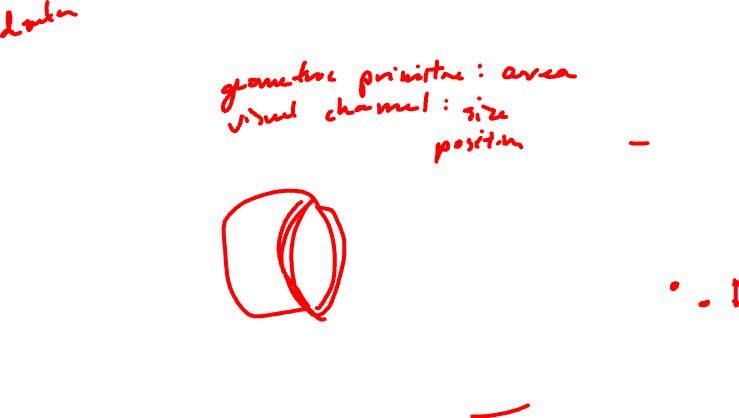 geometric primitive: area
visual channel: size
position